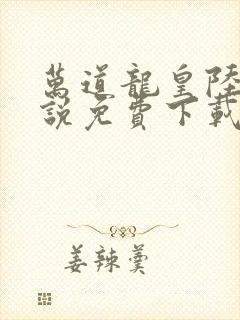 萬道龍皇陸
說免費下載
姜辣羹